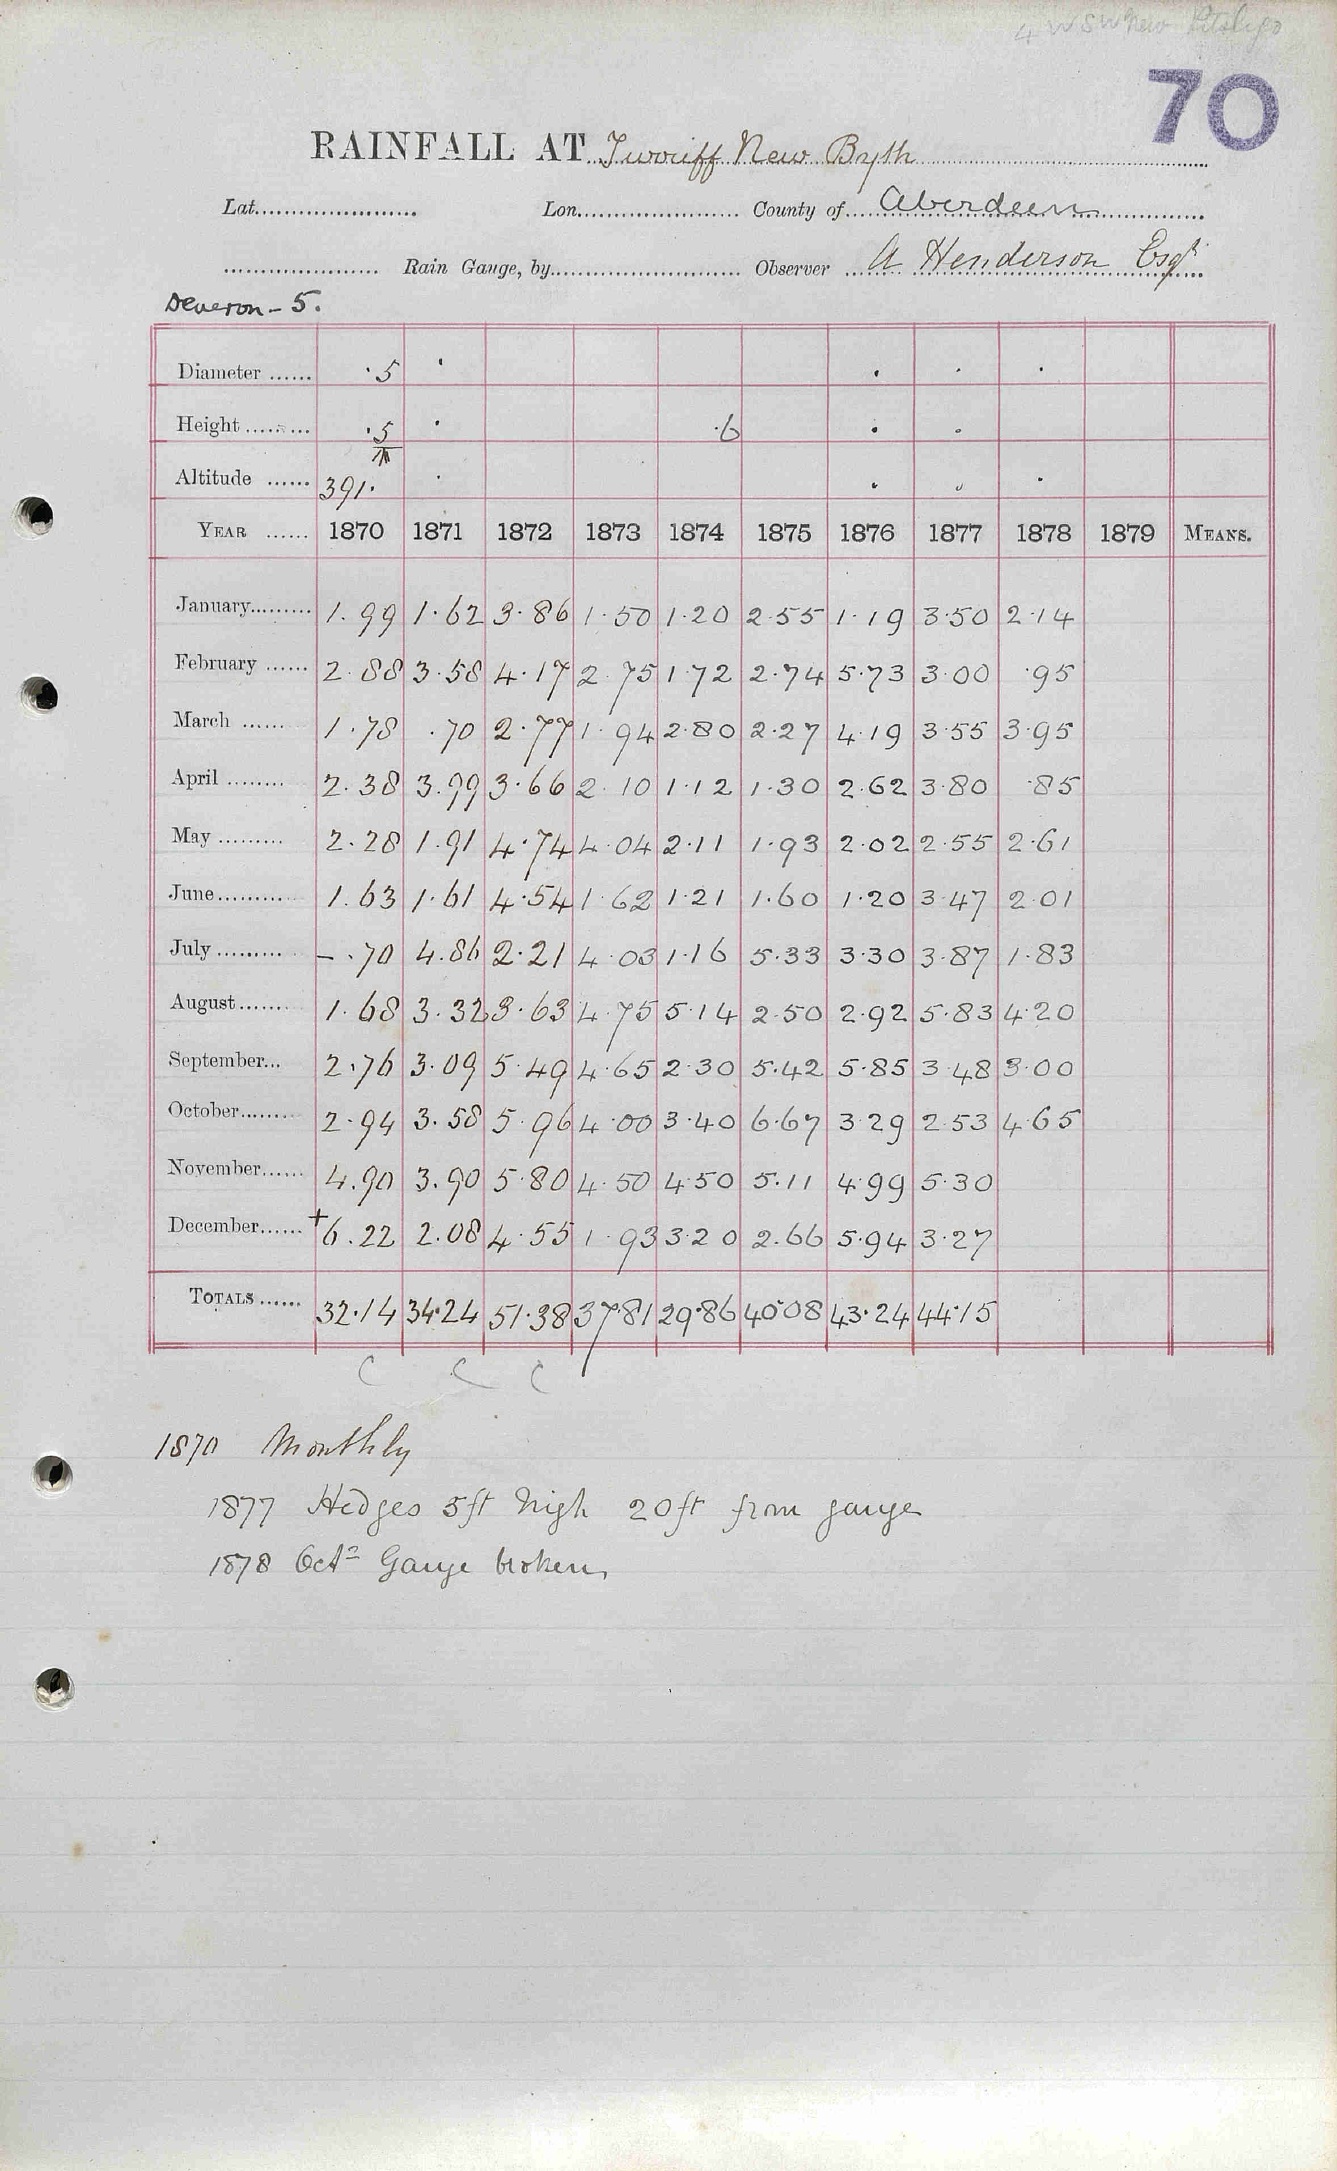 4 WSW New Pitsligo
70
RAINFALL AT Turriff New Byth
Lat. Lon. County of Aberdeen
Rain Gauge, by Observer A Henderson Esqr
Deveron - 5.
Diameter ·5
Height ·5 ·6
Altitude 391·
YEAR 1870 1871 1872 1873 1874 1875 1876 1877 1878 1879 MEANS.
January 1.99 1.62 3.86 1.50 1.20 2.55 1.19 3.50 2.14
February 2.88 3.58 4.17 2.75 1.72 2.74 5.73 3.00 .95
March 1.78 .70 2.77 1.94 2.80 2.27 4.19 3.55 3.95
April 2.38 3.99 3.66 2.10 1.12 1.30 2.62 3.80 .85
May 2.28 1.91 4.74 4.04 2.11 1.93 2.02 2.55 2.61
June 1.63 1.61 4.54 1.62 1.21 1.60 1.20 3.47 2.01
July - .70 4.86 2.21 4.03 1.16 5.33 3.30 3.87 1.83
August 1.68 3.32 3.63 4.75 5.14 2.50 2.92 5.83 4.20
September 2.76 3.09 5.49 4.65 2.30 5.42 5.85 3.48 3.00
October 2.94 3.58 5.96 4.00 3.40 6.67 3.29 2.53 4.65
November 4.90 3.90 5.80 4.50 4.50 5.11 4.99 5.30
December +6.22 2.08 4.55 1.93 3.20 2.66 5.94 3.27
TOTALS 32.14 34.24 51.38 37.81 29.86 40.08 43.24 44.15
C C C
1870 Monthly
1877 Hedges 5ft high 20ft from gauge
1878 Octr Gauge broken